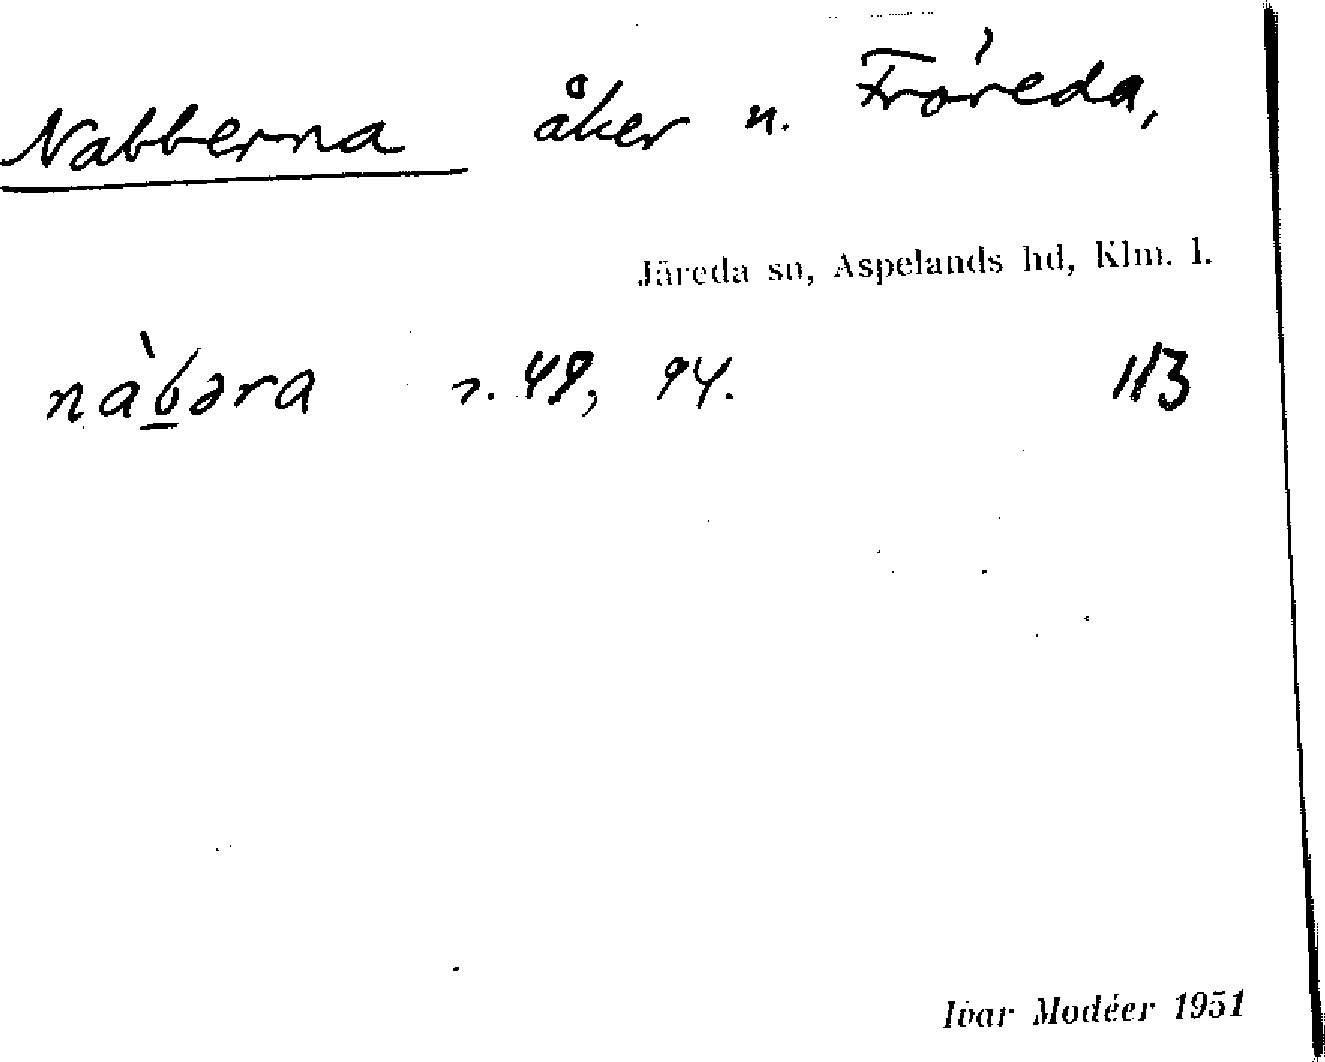 Nabberna åker n. Fröreda,
Järeda sn, Aspelands hd, Klm. l.
nàb̲əra s. 49, 94. 113
Ivar Modéer 1951